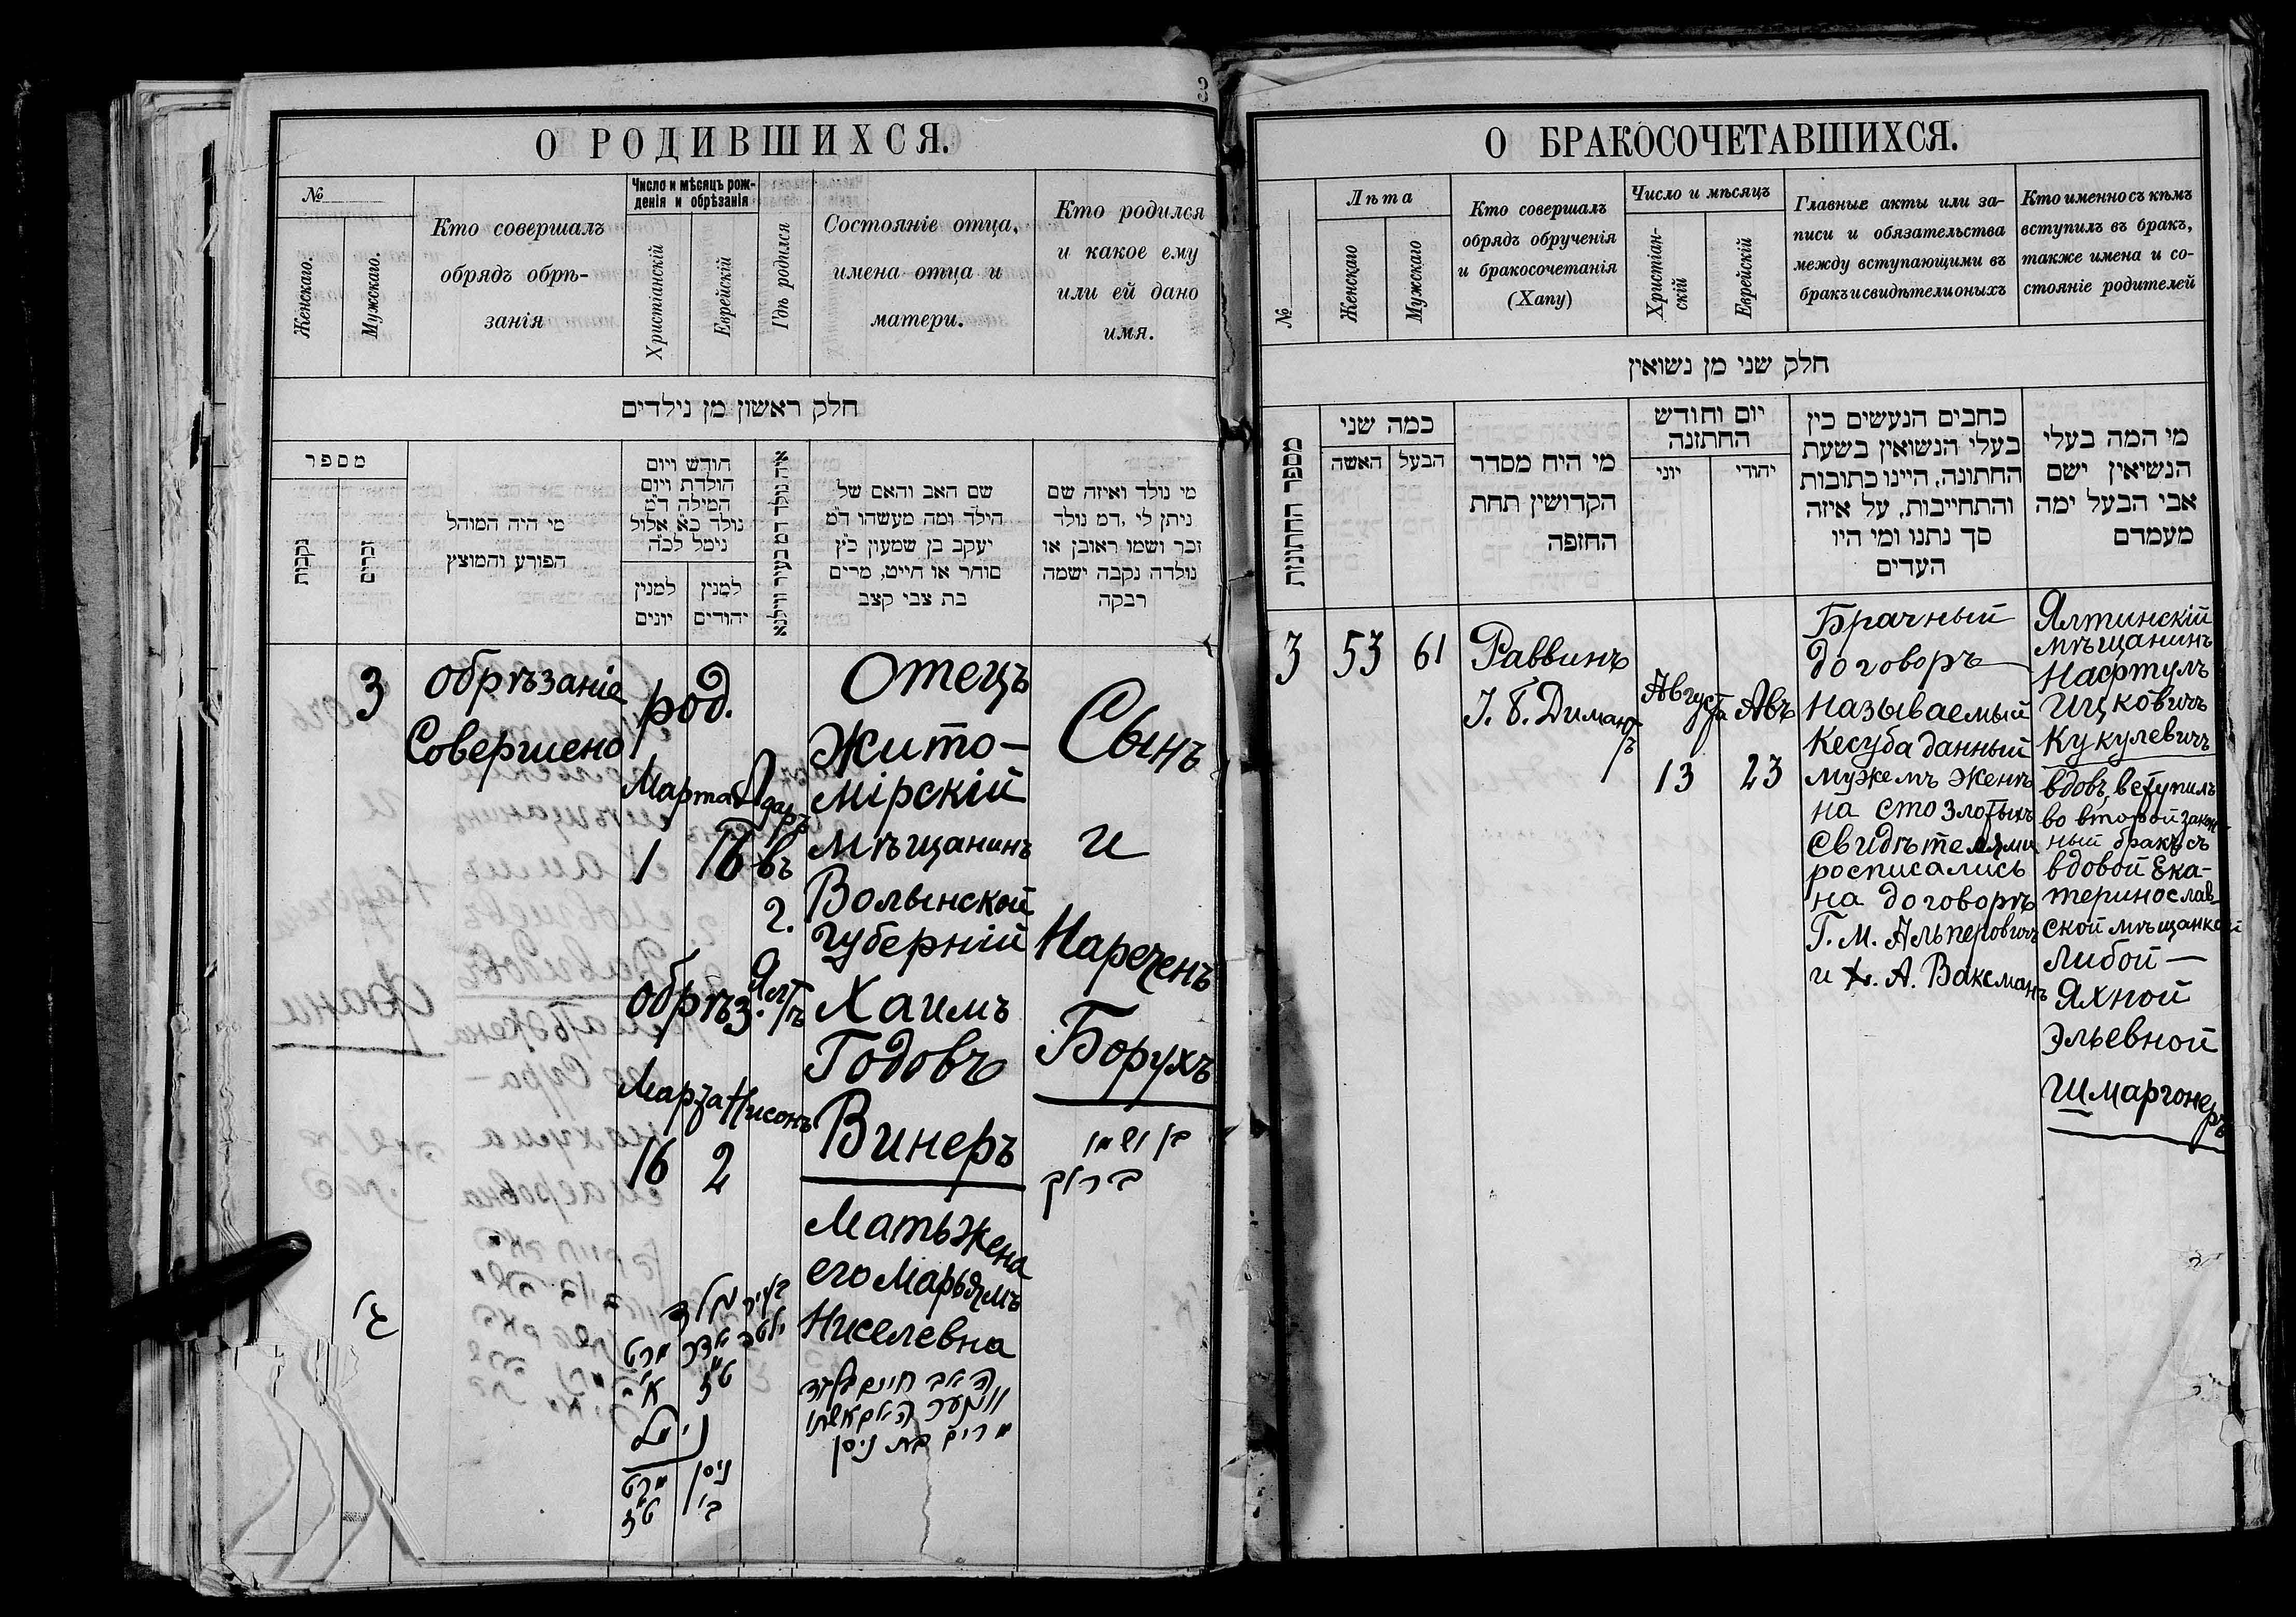 3
О РОДИВШИХСЯ.
№
Женскаго.
Мужскаго.
Кто совершалъ
обрядъ обрѣ-
занія
Число и мѣсяцъ рож-
денія и обрѣзанія
Христіанскій
Еврейскій
Гдѣ родился
Состояніе отца,
имена отца и
матери.
Кто родился
и какое ему
или ей дано
имя.
חלק ראשון מן נילדים
מספר
נקבות
זכרים
מי היה המוהל
הפורע והמוצץ
חודש ויום
הולדת ויום
המילה ד״מ
נולד כ״א אלול
נימל לכ״ה
למנין
יונים
למנין
יהודים
שם האב והאם של
הילד ומה מעשהו ד״מ
יעקב בן שמעון כ״ץ
סוחר או חייט, מרים
בת צבי קצב
מי נולד ואיזה שם
ניתן לי ,דמ נולד
זכר ושמו ראובן או
נולדה נקבה ישמה
רבקה
3
обрѣзаніе
Совершено
род.
Марта Адаръ
1 16 въ
г.
Ялтѣ
обрѣз.
Марта Нисонъ
16 2
Отецъ
Жито-
мірскій
мѣщанинъ
Волынской
губерній
Хаимъ
Годовъ
Винеръ
Мать жена
его Марьямъ
Ниселевна
Сынъ
и
Нареченъ
Борухъ
בן ושמו
ברוך
ג׳
בעיר נולד
יאלטה אדר מרט
ט״ז א׳
נימול
ניסן מרט
ב׳ ט״ז
האב חיים
ווינער האם אשתו
מרים בת ניסן
О БРАКОСОЧЕТАВШИХСЯ.
№
Лѣта
Женскаго
Мужскаго
Кто совершалъ
обрядъ обрученія
и бракосочетанія
(Хапу)
Число и мѣсяцъ
Христіан-
скій
Еврейскій
Главные акты или за-
писи и обязательства
между вступающими въ
бракъ и свидѣтели оныхъ
Кто именно съ кѣмъ
вступилъ въ бракъ,
также имена и со-
стояніе родителей
חלק שני מן נשואין
מספר החתונות
כמה שני
האשה
הבעל
מי היח מסדר
הקדושין תחת
החופה
יום וחודש
החתונה
יוני
יהודי
כתבים הנעשים בין
בעלי הנשואין בשעת
החתונה, היינו כתובות
והתחייבות, על איזה
סך נתנו ומי היו
העדים
מי המה בעלי
הנשיאין ישם
אבי הבעל ימה
מעמדם
3 53 61
Раввинъ
І. Б. Димантъ
Августа Авъ
13 23
Брачный
договоръ
Называемый
Кесуба данный
мужемъ женѣ
на сто злотыхъ
свидѣтелями
росписались
на договорѣ
Г. М. Альперовичъ
и А. Ваксманъ
Ялтинскій
мѣщанинъ
Нафтулъ
Ицковичъ
Кукулевичъ
вдовъ, вступилъ
во второй закон-
ный бракъ съ
вдовой Ека-
теринослав-
ской мѣщанкой
Либой —
Яхной
Эльевной
Шмаргонеръ